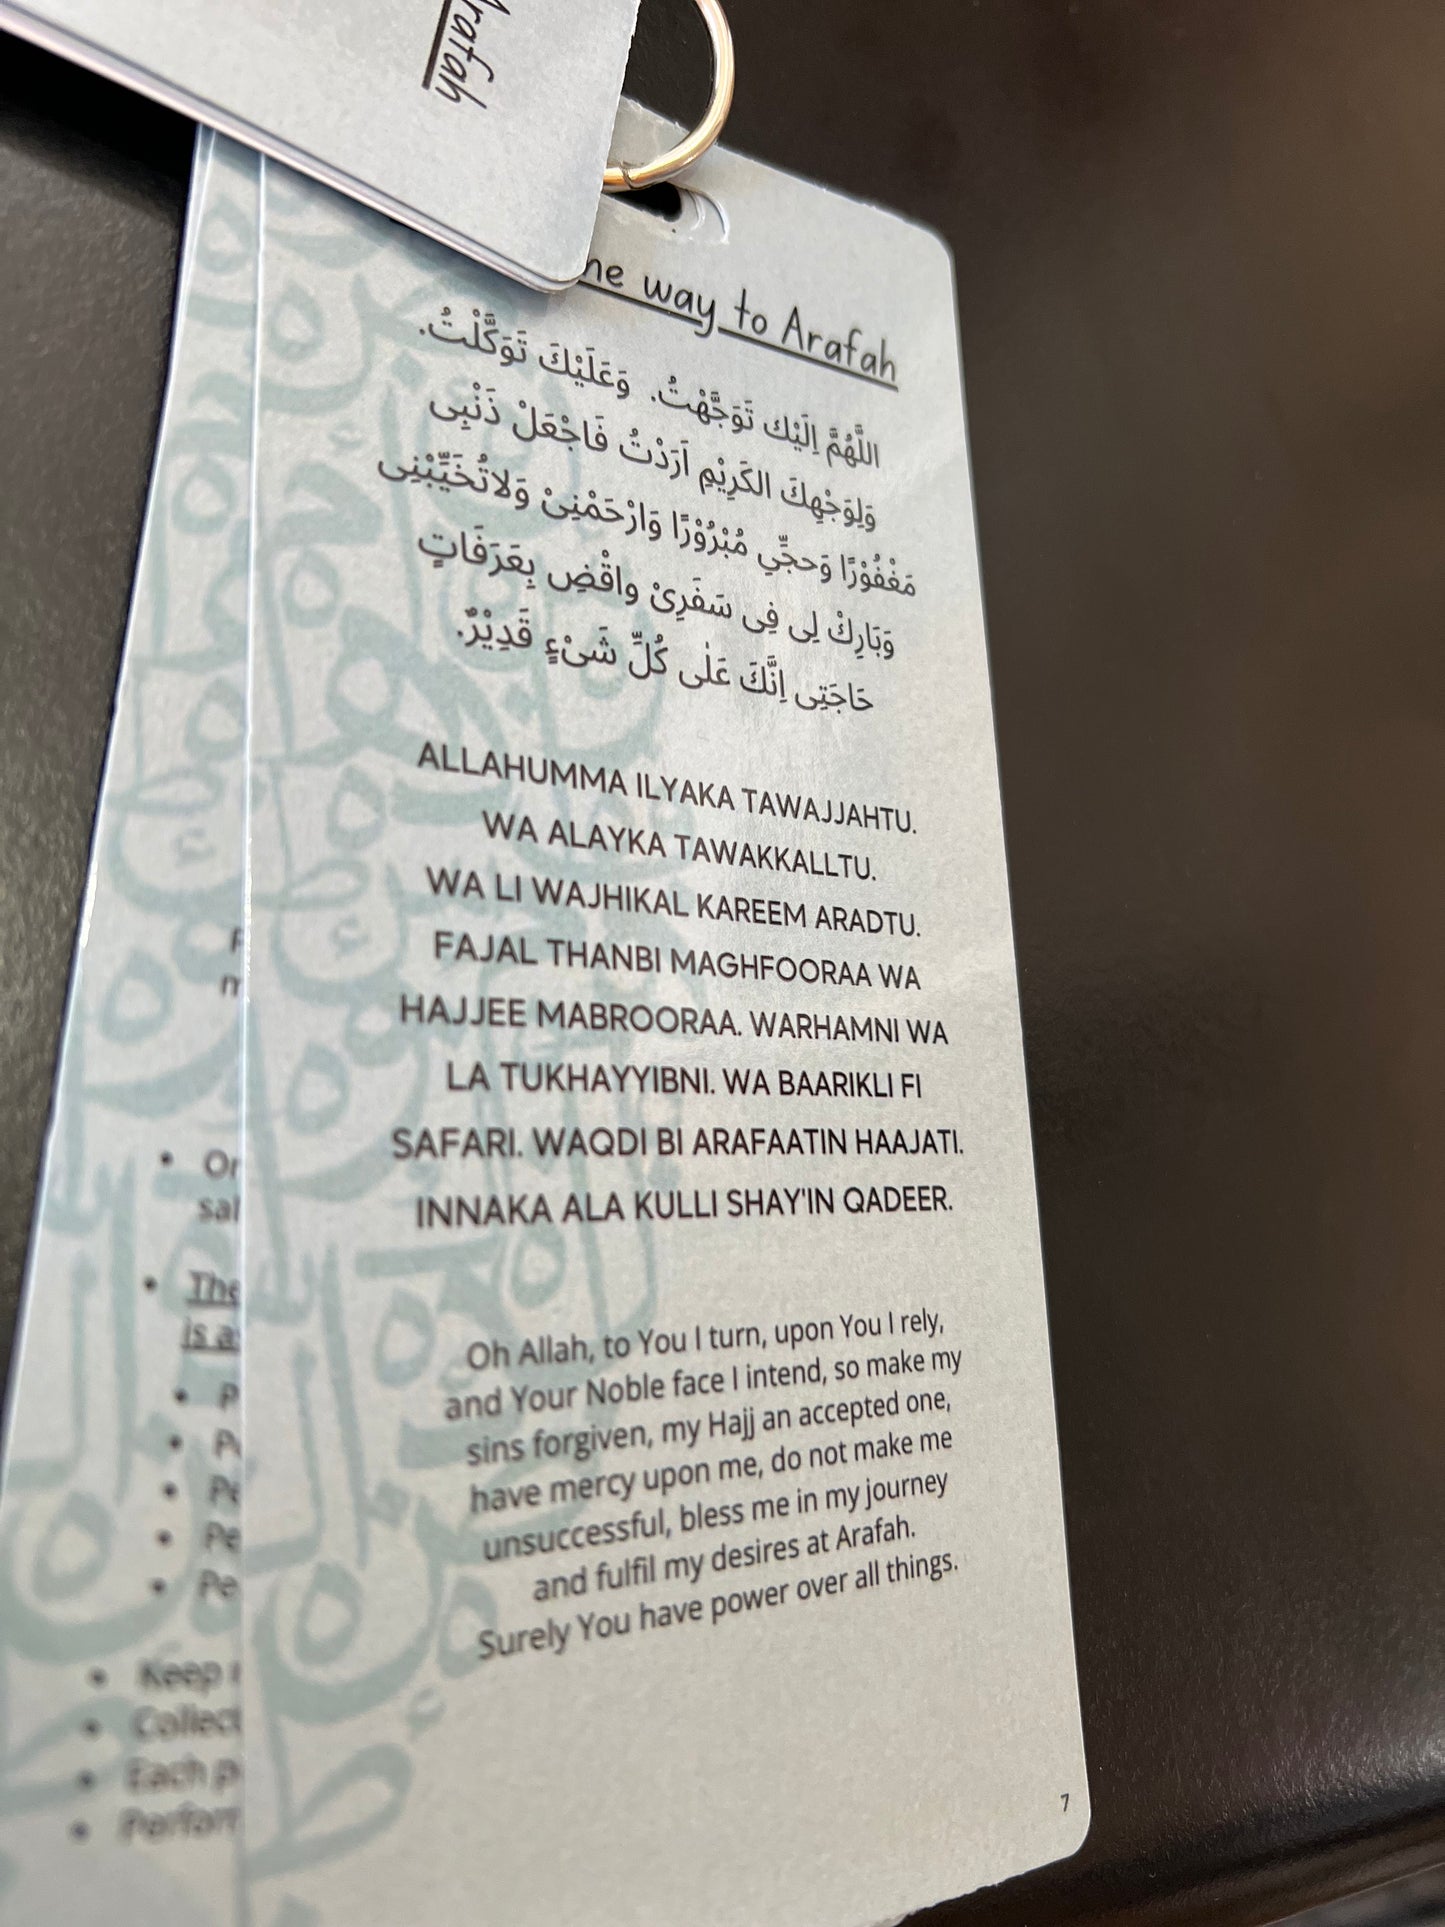 Arafah
he way to Arafah
اللَّهُمَّ اِلَيْكَ تَوَجَّهْتُ. وَعَلَيْكَ تَوَكَّلْتُ.
وَلِوَجْهِكَ الكَرِيْمِ اَرَدْتُ فَاجْعَلْ ذَنْبِى
مَغْفُوْرًا وَحجِّي مُبْرُوْرًا وَارْحَمْنِىْ وَلاتُخَيِّبْنِى
وَبَارِكْ لِى فِى سَفَرِىْ واقْضِ بِعَرَفَاتٍ
حَاجَتِى اِنَّكَ عَلٰى كُلِّ شَىْءٍ قَدِيْرٌ.
ALLAHUMMA ILYAKA TAWAJJAHTU.
WA ALAYKA TAWAKKALLTU.
WA LI WAJHIKAL KAREEM ARADTU.
FAJAL THANBI MAGHFOORAA WA
HAJJEE MABROORAA. WARHAMNI WA
LA TUKHAYYIBNI. WA BAARIKLI FI
SAFARI. WAQDI BI ARAFAATIN HAAJATI.
INNAKA ALA KULLI SHAY'IN QADEER.
Oh Allah, to You I turn, upon You I rely,
and Your Noble face I intend, so make my
sins forgiven, my Hajj an accepted one,
have mercy upon me, do not make me
unsuccessful, bless me in my journey
and fulfil my desires at Arafah.
Surely You have power over all things.
7
sal
The
• P
• Pe
• Pe
• Keep
• Collect
• Each p
• Perform